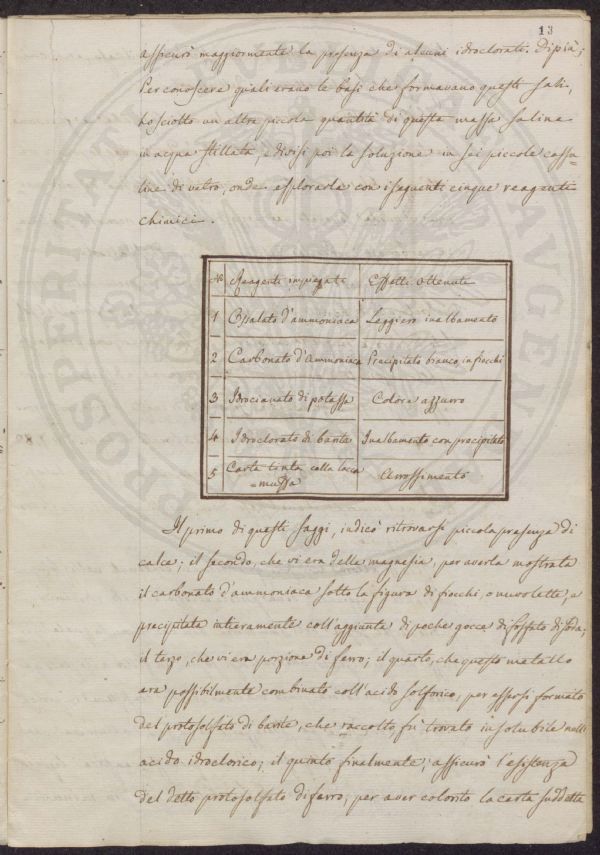 13
assicurò maggiormente la presenza di alcuni idroclorati. Dipiù;
Per conoscere quali erano le basi che formavano questi sali,
ho sciolto un altra piccola quantità di questa massa salina
in acqua stillata, e divisi poi la soluzione in sei piccole cassu=
line di vetro, onde esplorarla con i seguenti cinque reagenti
chimici.
No Reagenti impiegati Effetti ottenuti
1 Ossalato d'ammoniaca Leggiero inalbamento
2 Carbonato d'Ammoniaca Precipitato bianco in fiocchi
3 Idrocianato di potassa Colore azzurro
4 Idroclorato di barite Inalbamento con precipitato
5 Carta tinta colla lacca
=muffa Arrossimento
Il primo di questi saggi, indicò ritrovarsi piccola presenza di
calce; il secondo, che vi era della magnesia, per averla mostrata
il carbonato d'ammoniaca sotto la figura di fiocchi, o nuvolette, e
precipitata intieramente coll'aggiunta di poche gocce di fosfato di soda;
il terzo, che vi era porzione di ferro; il quarto, che questo metallo
era possibilmente combinato coll'acido solforico, per essersi formato
del protosolfato di barite, che raccolto fù trovato insolubile nell'
acido idroclorico; il quinto finalmente, assicurò l'esistenza
del detto protosolfato di ferro, per aver colorito la carta suddetta
PROSPERITATI AVGENDAE